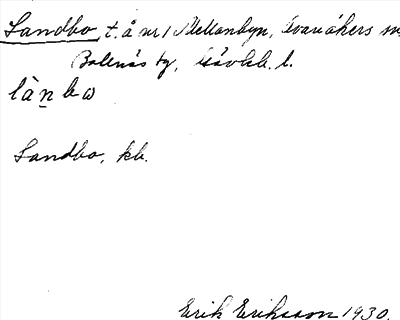 Sandbo, t. å nr 1 Mellanbyn, Svanåkers
Bollnäs tg, Gävleb. l.
làn̠bω
Sandbo, kb.
Erik Eriksson 1930.